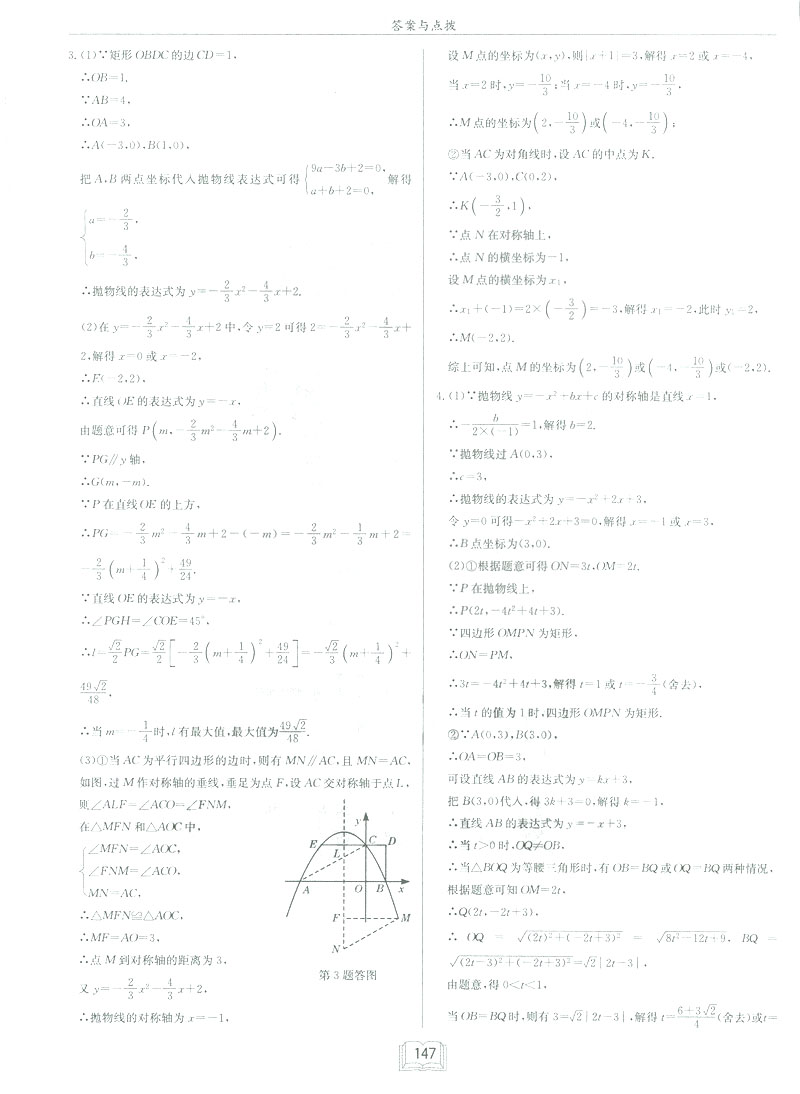 答案与点拨
3.(1)∵矩形OBDC的边CD=1,
∴OB=1.
∵AB=4,
∴OA=3,
∴A(-3,0),B(1,0),
把A,B两点坐标代入抛物线表达式可得{9a-3b+2=0, a+b+2=0, 解得
{a=-2/3, b=-4/3,
∴抛物线的表达式为y=-2/3x²-4/3x+2.
(2)在y=-2/3x²-4/3x+2中,令y=2可得2=-2/3x²-4/3x+
2,解得x=0或x=-2,
∴E(-2,2),
∴直线OE的表达式为y=-x,
由题意可得P(m,-2/3m²-4/3m+2).
∵PG∥y轴,
∴G(m,-m).
∵P在直线OE的上方,
∴PG=-2/3m²-4/3m+2-(-m)=-2/3m²-1/3m+2=
-2/3(m+1/4)²+49/24.
∵直线OE的表达式为y=-x,
∴∠PGH=∠COE=45°,
∴l=√2/2PG=√2/2[-2/3(m+1/4)²+49/24]=-√2/3(m+1/4)²+
49√2/48.
∴当m=-1/4时,l有最大值,最大值为49√2/48.
(3)①当AC为平行四边形的边时,则有MN∥AC,且MN=AC,
如图,过M作对称轴的垂线,垂足为点F,设AC交对称轴于点L,
则∠ALF=∠ACO=∠FNM,
在△MFN和△AOC中,
{∠MFN=∠AOC,
∠FNM=∠ACO,
MN=AC,
∴△MFN≌△AOC,
∴MF=AO=3,
∴点M到对称轴的距离为3,
又y=-2/3x²-4/3x+2,
∴抛物线的对称轴为x=-1,
y
E C D
L
A O B x
F M
N
第3题答图
设M点的坐标为(x,y),则|x+1|=3,解得x=2或x=-4,
当x=2时,y=-10/3;当x=-4时,y=-10/3,
∴M点的坐标为(2,-10/3)或(-4,-10/3);
②当AC为对角线时,设AC的中点为K.
∵A(-3,0),C(0,2),
∴K(-3/2,1),
∵点N在对称轴上,
∴点N的横坐标为-1,
设M点的横坐标为x₁,
∴x₁+(-1)=2×(-3/2)=-3,解得x₁=-2,此时y₁=2,
∴M(-2,2).
综上可知,点M的坐标为(2,-10/3)或(-4,-10/3)或(-2,2).
4.(1)∵抛物线y=-x²+bx+c的对称轴是直线x=1,
∴-b/2×(-1)=1,解得b=2.
∵抛物线过A(0,3),
∴c=3,
∴抛物线的表达式为y=-x²+2x+3,
令y=0可得-x²+2x+3=0,解得x=-1或x=3,
∴B点坐标为(3,0).
(2)①根据题意可得ON=3t,OM=2t.
∵P在抛物线上,
∴P(2t,-4t²+4t+3).
∵四边形OMPN为矩形,
∴ON=PM,
∴3t=-4t²+4t+3,解得t=1或t=-3/4(舍去),
∴当t的值为1时,四边形OMPN为矩形.
②∵A(0,3),B(3,0),
∴OA=OB=3,
可设直线AB的表达式为y=kx+3,
把B(3,0)代入,得3k+3=0,解得k=-1,
∴直线AB的表达式为y=-x+3,
∴当t>0时,OQ≠OB,
∴当△BOQ为等腰三角形时,有OB=BQ或OQ=BQ两种情况,
根据题意可知OM=2t,
∴Q(2t,-2t+3),
∴OQ=√(2t)²+(-2t+3)²=√8t²-12t+9,BQ=
√(2t-3)²+(-2t+3)²=√2|2t-3|,
由题意,得0<t<1,
当OB=BQ时,则有3=√2|2t-3|,解得t=6+3√2/4(舍去)或t=
147